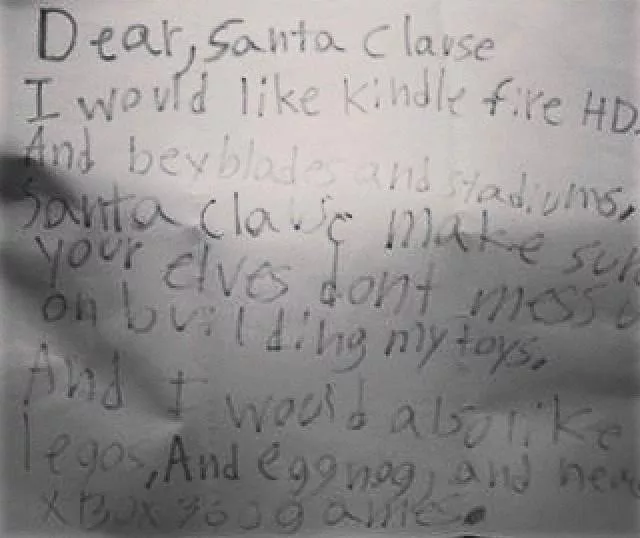 Dear, Santa Clause
I would like kindle fire HD.
And beyblades and stadiums,
Santa clause make sur
your elves dont mess u
on building my toys.
And I would also like
legos, And eggnog, and new
XBOX 360 games.